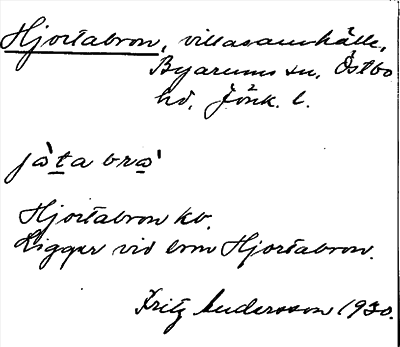 Hjortabron, villasamhälle,
Byarums sn, Östbo
hd, Jönk. l.
jò̀ta bro'
Hjortabron kb.
Ligger vid bron Hjortabron.
Fritz Andersson 1930.